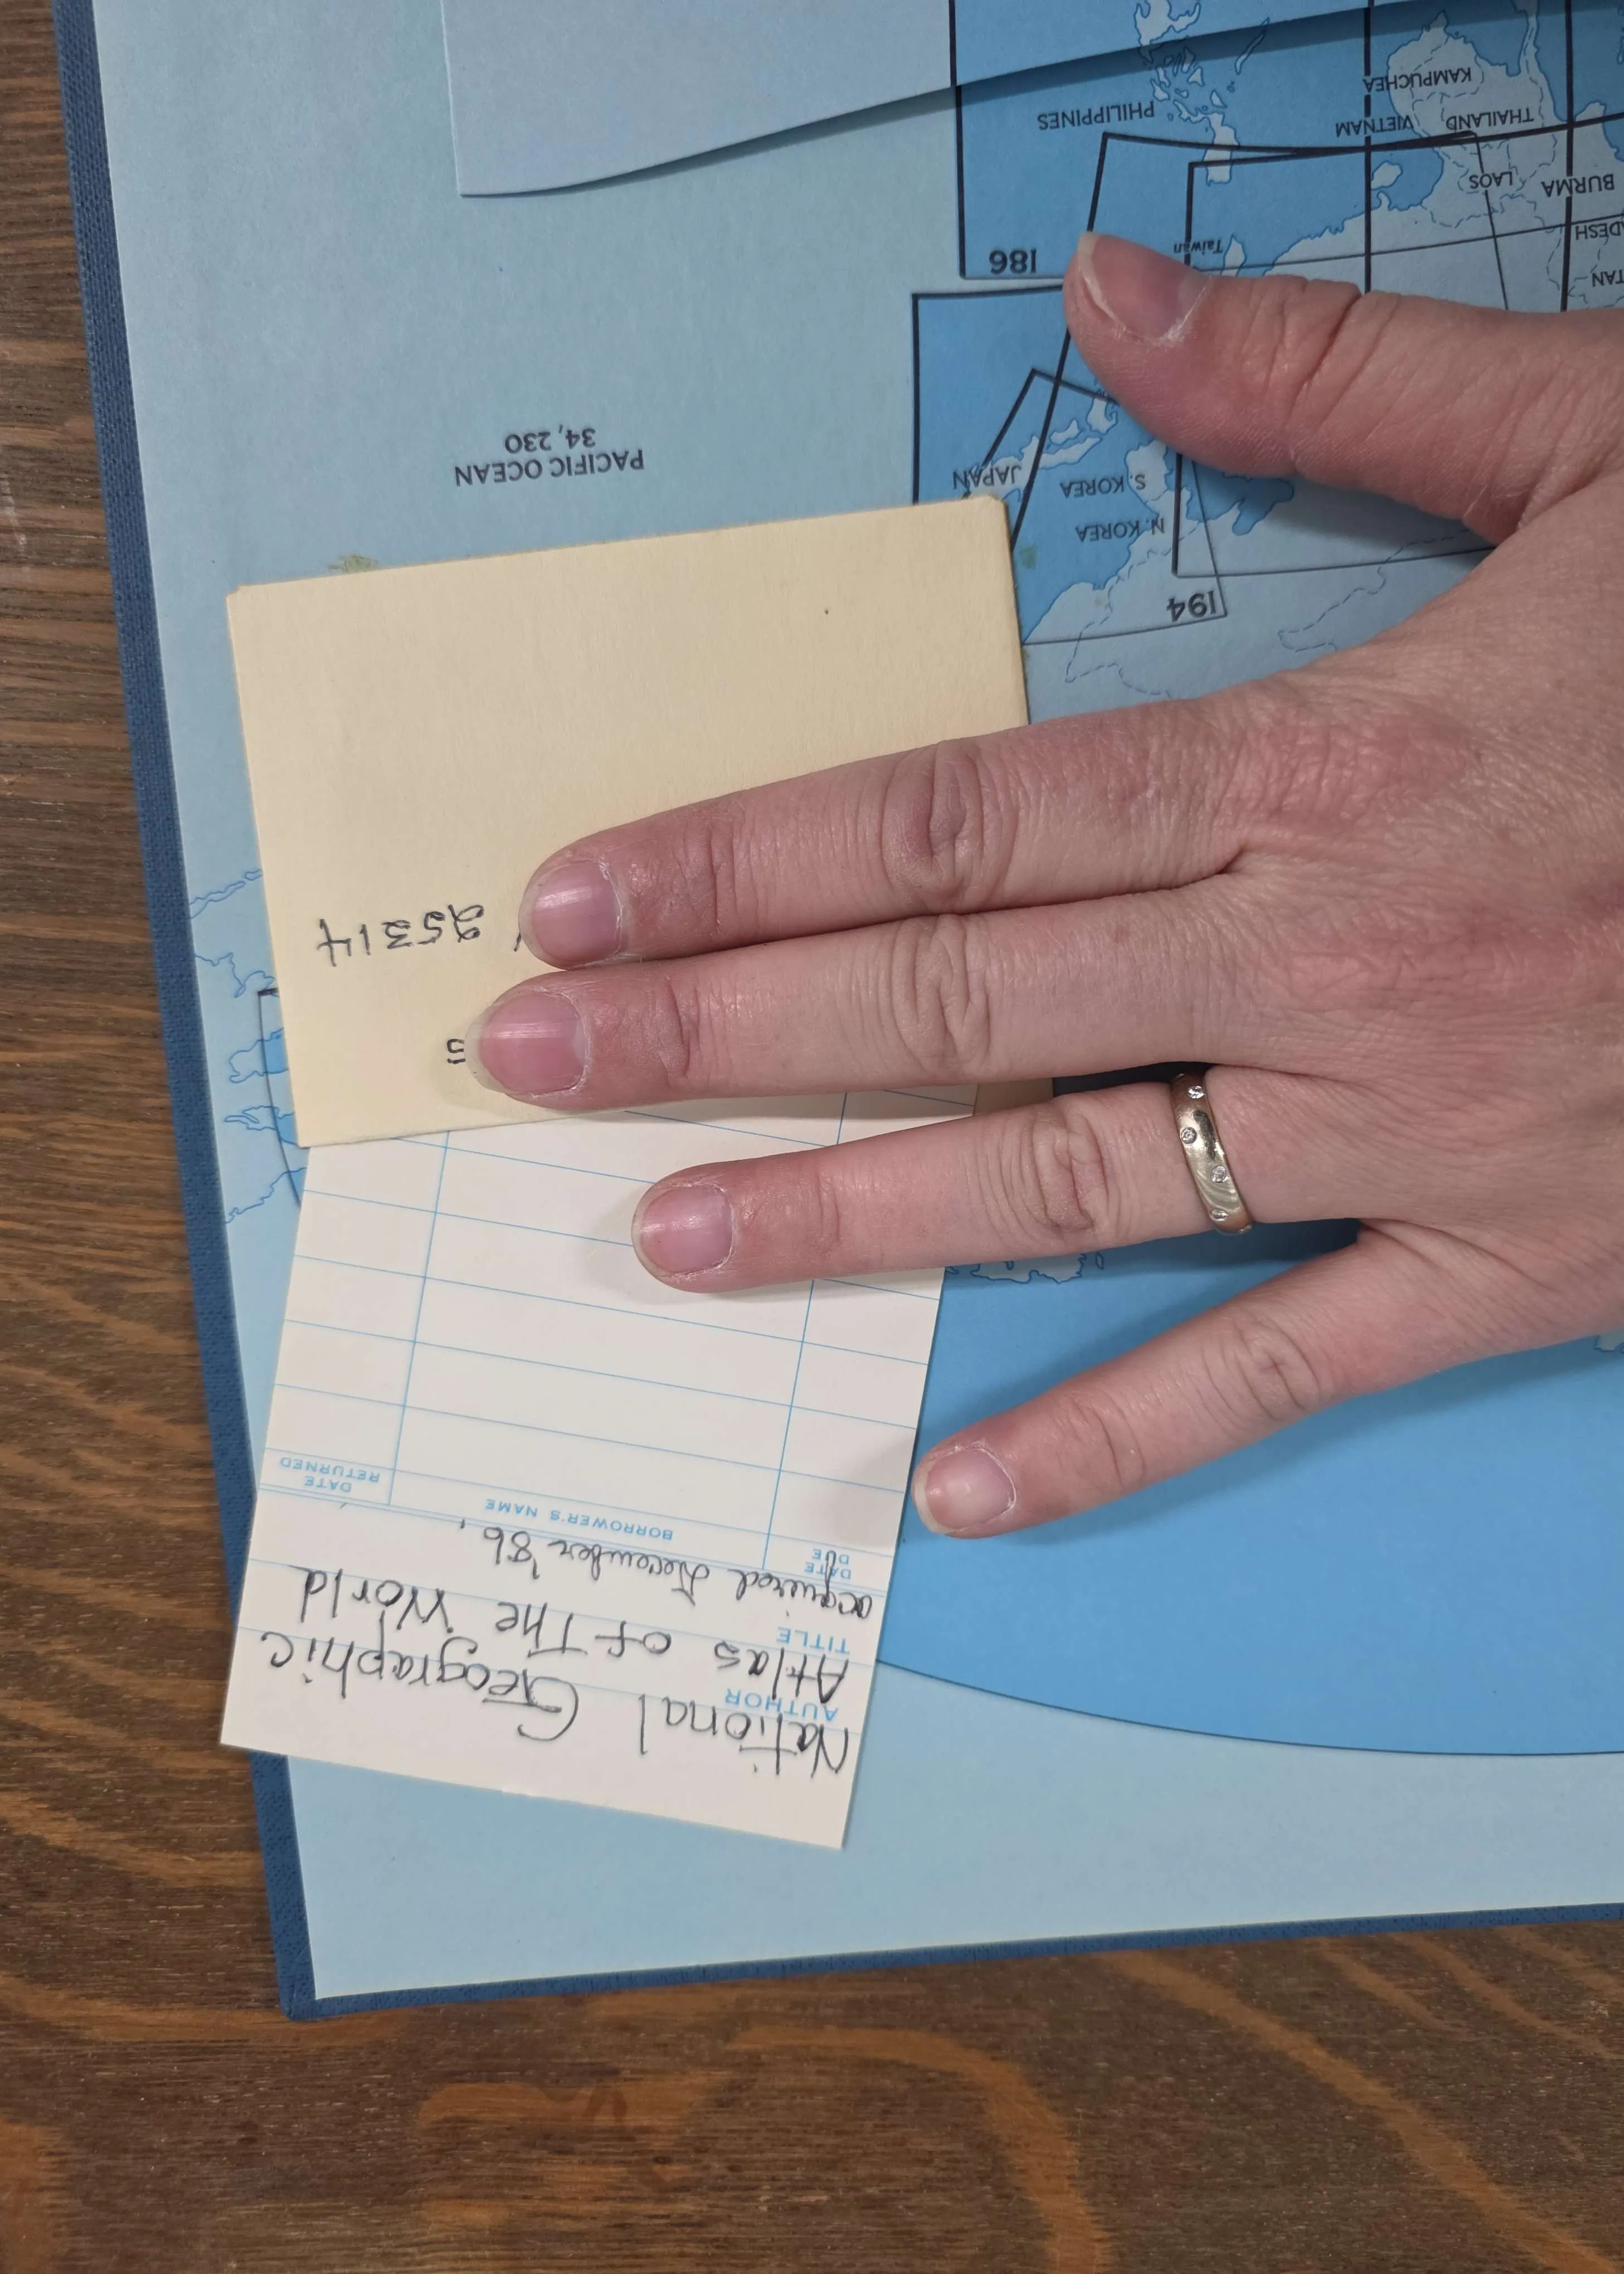 National Geographic
AUTHOR
Atlas of The World
TITLE
acquired December '86.
DATE DUE
BORROWER'S NAME
DATE RETURNED
25314
194
N. KOREA
S. KOREA
JAPAN
PACIFIC OCEAN
34, 230
186
Taiwan
BURMA
LAOS
THAILAND
VIETNAM
KAMPUCHEA
PHILIPPINES